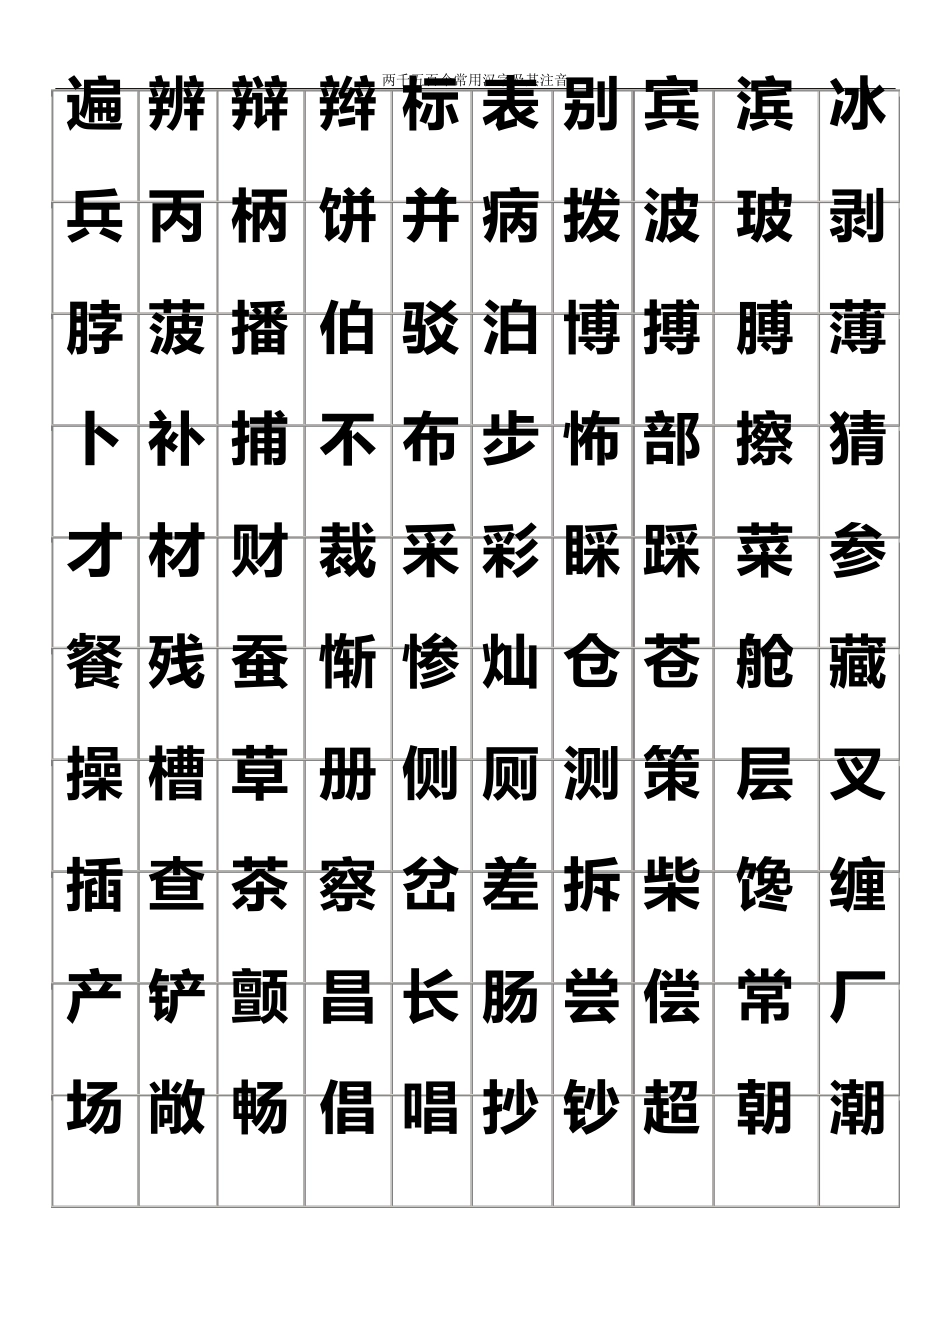 两千五百个常用汉字及其注音
遍 辨 辩 辫 标 表 别 宾 滨 冰
兵 丙 柄 饼 并 病 拨 波 玻 剥
脖 菠 播 伯 驳 泊 博 搏 膊 薄
卜 补 捕 不 布 步 怖 部 擦 猜
才 材 财 裁 采 彩 睬 踩 菜 参
餐 残 蚕 惭 惨 灿 仓 苍 舱 藏
操 槽 草 册 侧 厕 测 策 层 叉
插 查 茶 察 岔 差 拆 柴 馋 缠
产 铲 颤 昌 长 肠 尝 偿 常 厂
场 敞 畅 倡 唱 抄 钞 超 朝 潮